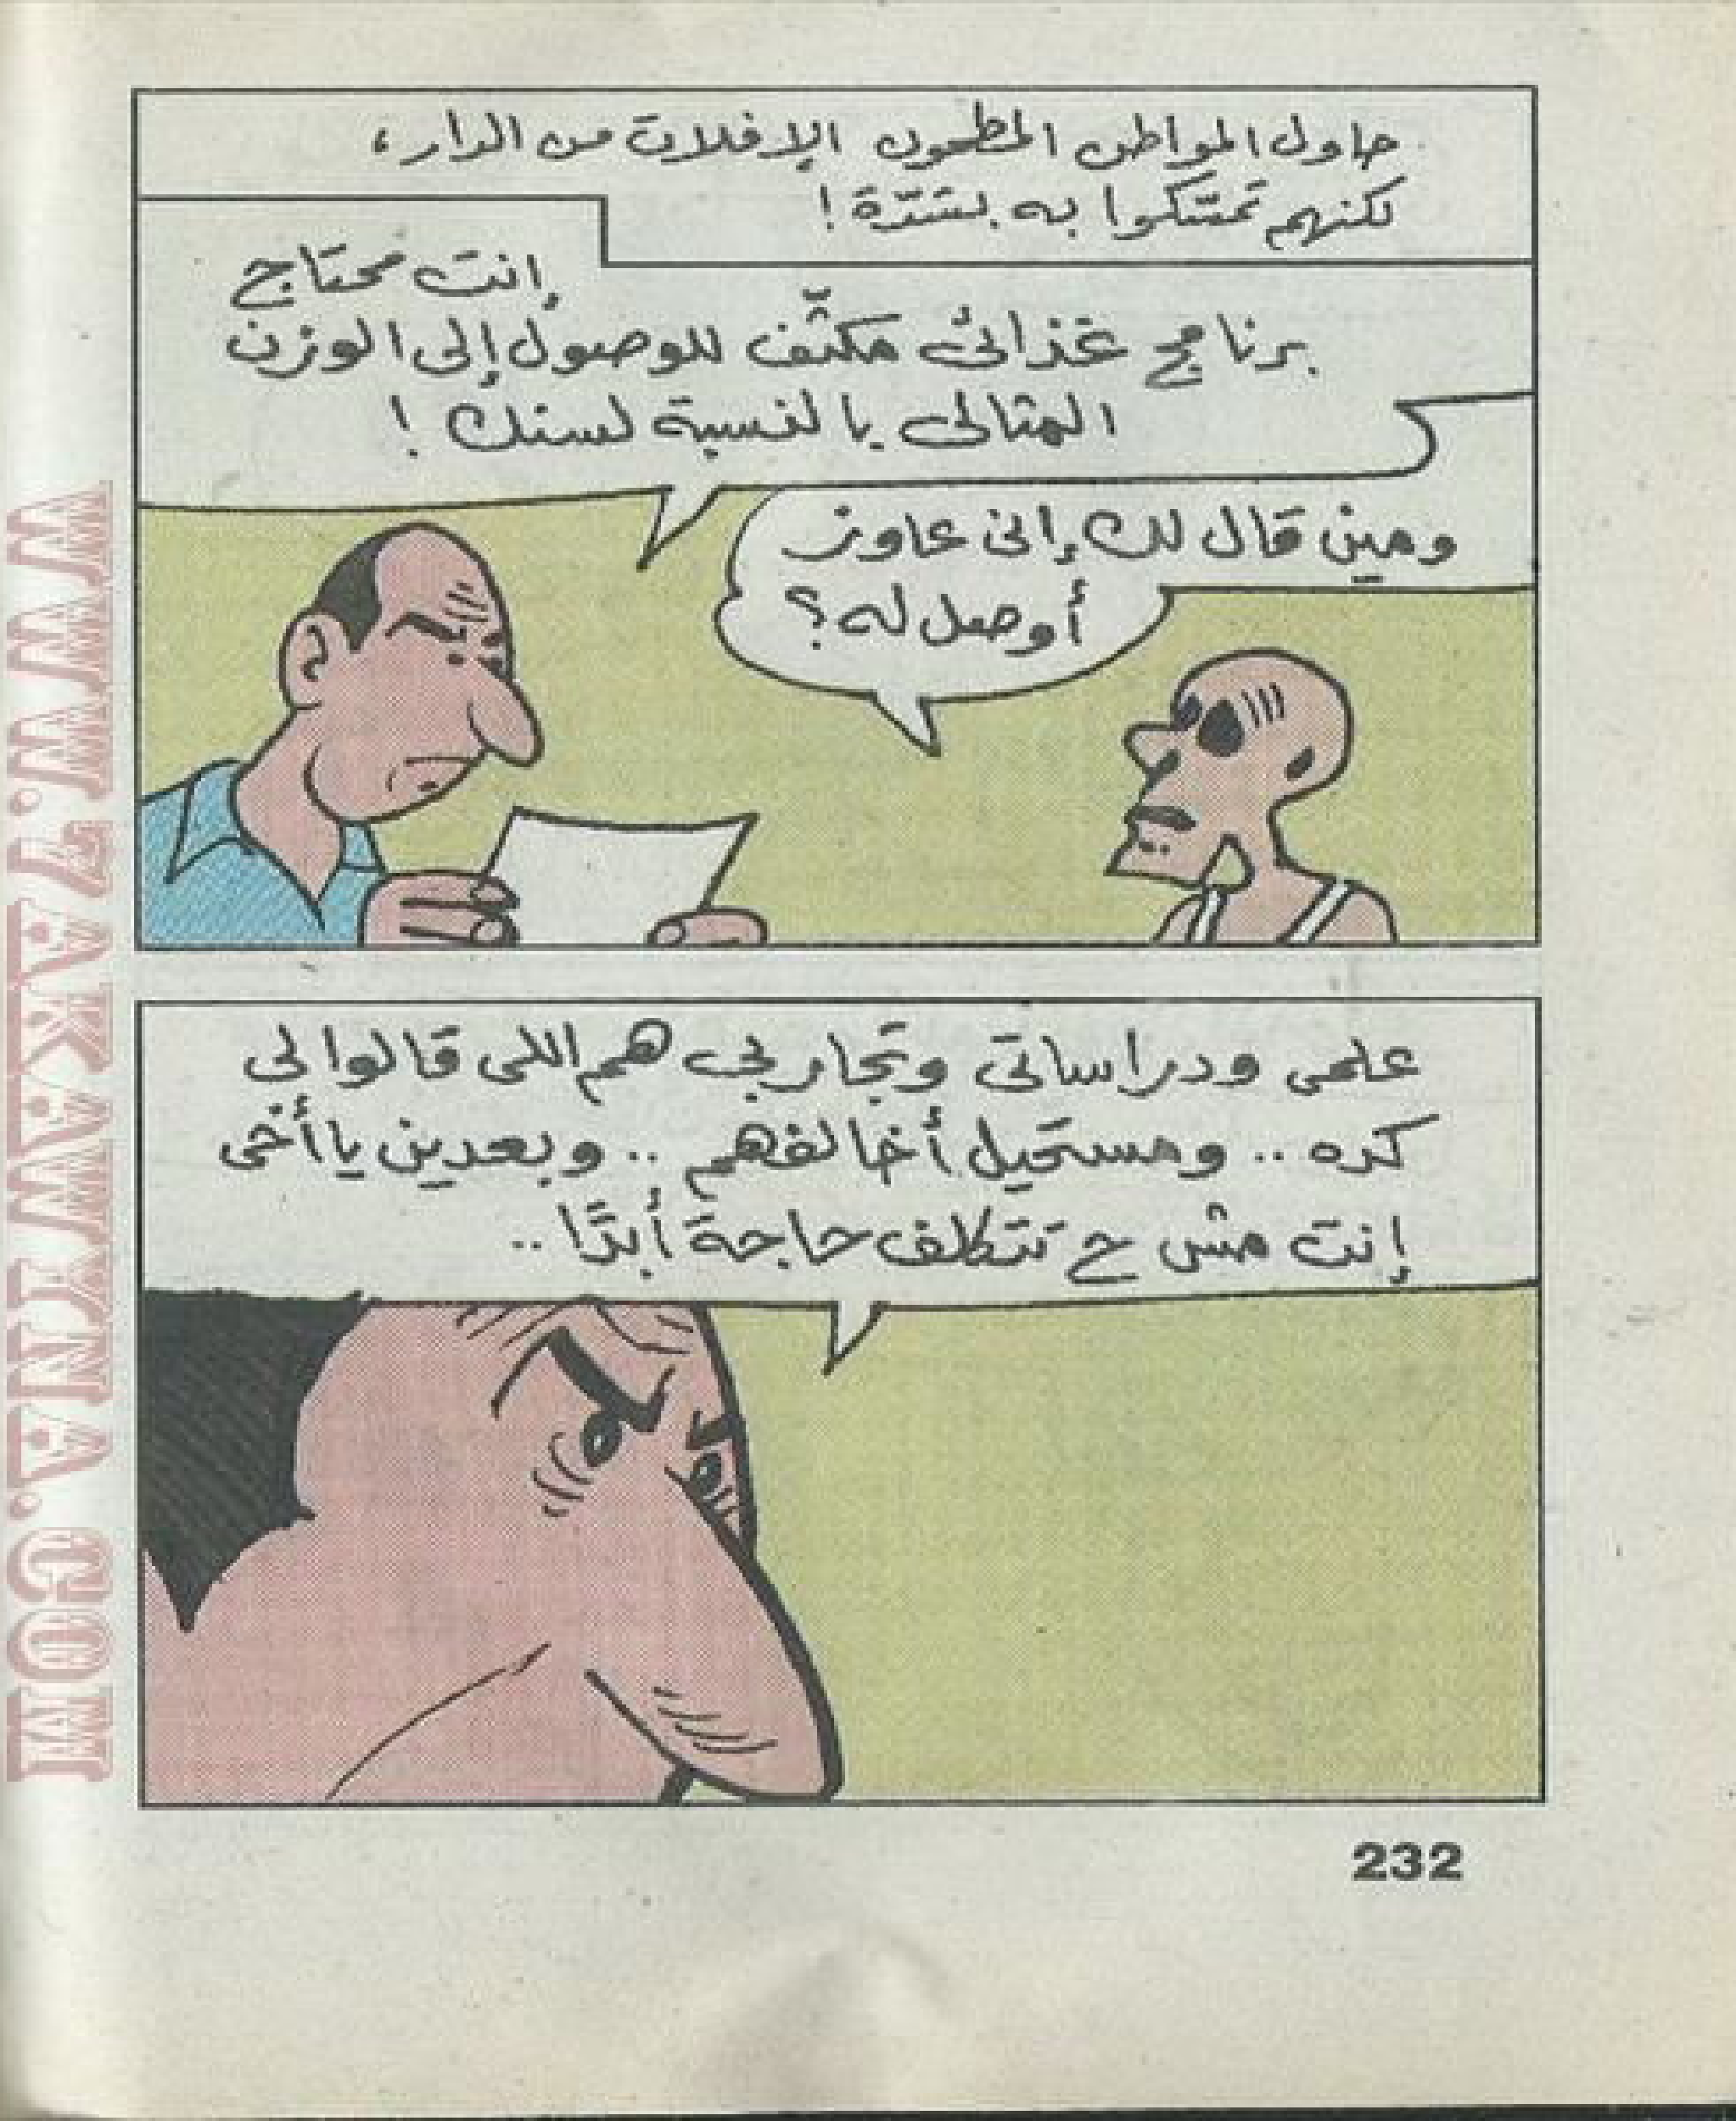 حاول المواطن المطحون الإفلات من الدار،
لكنهم تمسّكوا به بشدّة!
إنت محتاج
برنامج غذائى مكثّف للوصول إلى الوزن
المثالى بالنسبة لسنك!
ومين قال لك إنى عاوز
أوصل له؟
علمى ودراساتى وتجاربى هم اللى قالوا لى
كده .. ومستحيل أخالفهم .. وبعدين يا أخى
إنت مش ح تتكلف حاجة أبدًا ..
232
WWW.7AKAWINA.COM